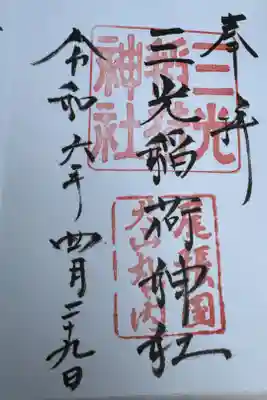 奉拝
三光稲荷神社
令和六年 四月二十九日
三光
稲荷
神社
尾張国
犬山丸の内